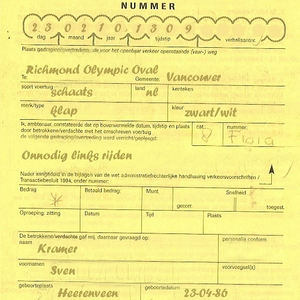 NUMMER
2 3 0 2 1 0 1 3 0 9
dag maand jaar tijd verbalisantnr.
Plaats gedraging/overtreding, als voor het openbaar verkeer openstaande (vaar-) weg
Richmond Olympic Oval
Te Gemeente: Vancouver
soort voertuig land kenteken
schaats nl
merk/type kleur
klap zwart/wit
Ik, ambtenaar, constateerde dat op bovenvermelde datum, tijdstip en plaats
door betrokkene/verdachte met het omschreven voertuig
de volgende gedraging/overtreding werd verricht/gepleegd:
cat. nummer:
Onnodig links rijden
Nader aangeduid in de bijlagen van de wet administratiefrechtelijke handhaving verkeersvoorschriften /
Transactiebesluit 1994, onder nummer:
Bedrag Betaald bedrag: Snelheid
Oproeping zitting Datum Tijd Plaats
De betrokkene/verdachte gaf mij, daarnaar gevraagd op
naam personalia conform
Kramer
voornamen voorvoegsel(s)
Sven
geboorteplaats geboortedatum
Heerenveen 23-04-86